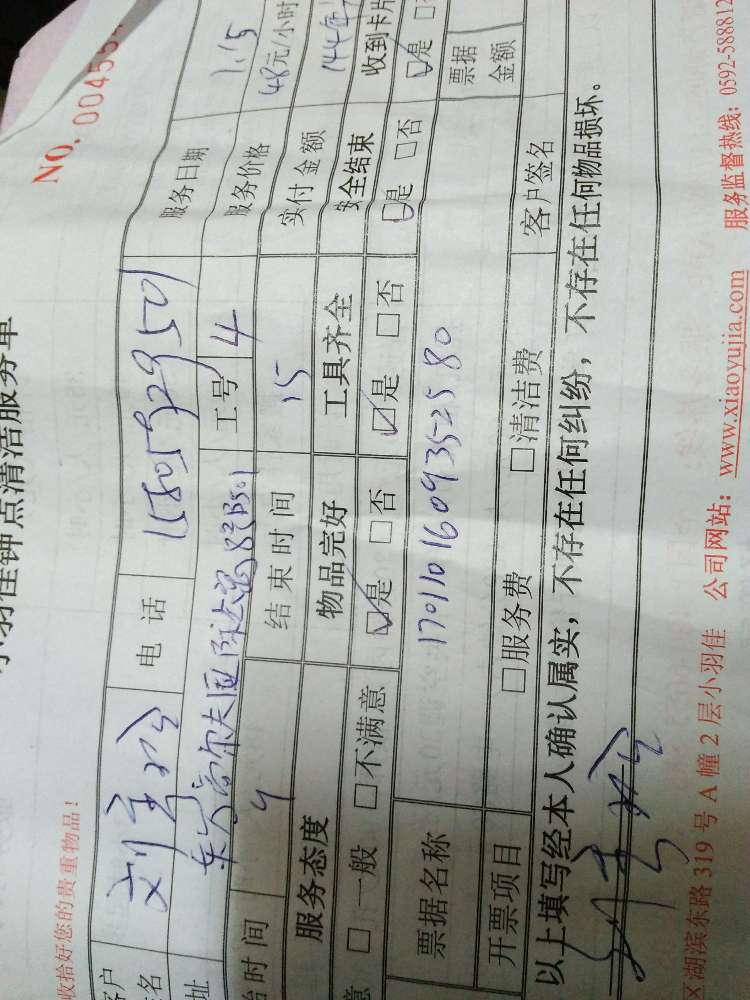 小羽佳钟点清洁服务单
NO. 00455
收拾好您的贵重物品！
电 话 15805929501 服务日期 1.15
工号 4 服务价格 48元/小时
时间 结束时间 15 实付金额 144
服务态度 物品完好 工具齐全 安全结束 收到卡片
意 □一般 □不满意 ☑是 □否 ☑是 □否 ☑是 □否 ☑是
票据名称 170110160935258 0 票据金额
开票项目 □服务费 □清洁费 客户签名
以上填写经本人确认属实，不存在任何纠纷，不存在任何物品损坏。
区湖滨东路 319 号 A 幢 2 层小羽佳 公司网站：www.xiaoyujia.com 服务监督热线：0592-5888812